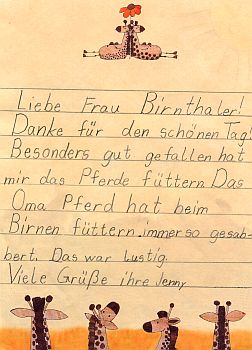 Liebe Frau Birnthaler!
Danke für den schönen Tag!
Besonders gut gefallen hat
mir das Pferde füttern. Das
Oma Pferd hat beim
Birnen füttern immer so gesab-
bert. Das war lustig.
Viele Grüße ihre Jenny